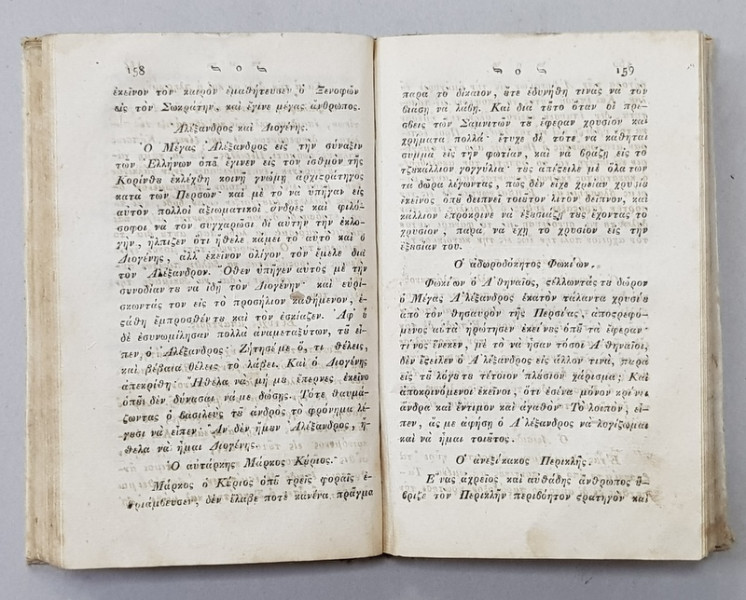 158
ἐκεῖνον τὸν καιρὸν ἐμαθήτευσεν ὁ Ξενοφῶν
εἰς τὸν Σωκράτην, καὶ ἔγινε μέγας ἄνθρωπος.
Ἀλέξανδρος καὶ Διογένης.
Ὁ Μέγας Ἀλέξανδρος εἰς τὴν σύναξιν
τῶν Ἑλλήνων ὁποῦ ἔγινεν εἰς τὸν ἰσθμὸν τῆς
Κορίνθου ἐκλέχθη κοινῇ γνώμῃ ἀρχιστράτηγος
κατὰ τῶν Περσῶν· καὶ μὲ τὸ νὰ ὑπῆγαν εἰς
αὐτὸν πολλοὶ ἀξιωματικοὶ ἄνδρες καὶ φιλό-
σοφοι νὰ τὸν συγχαρῶσι δι αὐτὴν τὴν ἐκλο-
γὴν, ἤλπιζεν ὅτι ἤθελε κάμει τὸ αὐτὸ καὶ ὁ
Διογένης, ἀλλ ἐκεῖνον ὀλίγον τὸν ἔμελε διὰ
τὸν Ἀλέξανδρον. Ὅθεν ὑπῆγεν αὐτὸς μὲ τὴν
συνοδίαν του νὰ ἰδῇ τὸν Διογένην· καὶ εὑρί-
σκωντάς τον εἰς τὸ προσήλιον καθήμενον, ἐ-
στάθη ἔμπροσθέν του καὶ τὸν ἐσκίαζεν. Ἀφ οὗ
δὲ ἐσυνωμίλησαν πολλὰ ἀναμεταξύτων, τοῦ εἶ-
πεν ὁ Ἀλέξανδρος· Ζήτησέ με ὅ, τι θέλεις,
καὶ βέβαια θέλεις τὸ λάβει. Καὶ ὁ Διογένης
ἀπεκρίθη· Ἤθελα νὰ μή μου ἔπερνες ἐκεῖνο
ὁποῦ δὲν δύνασαι νὰ με δώσῃς. Τότε θαυμά-
ζωντας ὁ βασιλεὺς τοῦ ἀνδρὸς τὸ φρόνημα λέ-
γουσι νὰ εἶπεν· Ἂν δὲν ἤμουν Ἀλέξανδρος, ἤ-
θελα νὰ ἦμαι Διογένης.
Ὁ αὐτάρκης Μάρκος Κύριος.
Μάρκος ὁ Κύριος ὁποῦ τρεῖς φοραῖς ἐ-
θριάμβευσεν, δὲν ἔλαβε ποτὲ κανένα πρᾶγμα
159
παρὰ τὸ δίκαιον, οὔτε ἐδυνήθη τινὰς νὰ τὸν
βιάσῃ νὰ λάβῃ. Καὶ διὰ τοῦτο ὅταν οἱ πρέ-
σβεις τῶν Σαμνιτῶν τοῦ ἔφεραν χρυσίον καὶ
χρήματα πολλὰ· ἔτυχε δὲ τότε νὰ κάθηται
σύμμα εἰς τὴν φωτίαν, καὶ νὰ βράζῃ εἰς τὸ
τζουκάλλιον γογγύλια· τοὺς ἀπέστειλε μὲ ὅλα των
τὰ δῶρα λέγωντας, πῶς δὲν εἶχε χρείαν χρυσίου
ἐκεῖνος ὁποῦ δειπνεῖ τοιοῦτον λιτὸν δεῖπνον, καὶ
κάλλιον ἐπρόκρινε νὰ ἐξουσιάζῃ τοὺς ἔχοντας τὸ
χρυσίον, παρὰ νὰ ἔχῃ τὸ χρυσίον εἰς τὴν
ἐξουσίαν του.
Ὁ ἀδωροδόκητος Φωκίων.
Φωκίων ὁ Ἀθηναῖος, στέλλωντάς του δῶρον
ὁ Μέγας Ἀλέξανδρος ἑκατὸν τάλαντα χρυσίου
ἀπὸ τὸν θησαυρὸν τῆς Περσίας, ἀποστρεφό-
μενος αὐτὰ ἠρώτησεν ἐκείνους ὁποῦ τὰ ἔφεραν·
τίνος ἕνεκεν, μὲ τὸ νὰ ἦσαν τόσοι Ἀθηναῖοι,
δὲν ἔστειλεν ὁ Ἀλέξανδρος εἰς ἄλλον τινὰ, παρὰ
εἰς τοῦ λόγου του τέτοιον πλούσιον χάρισμα; Καὶ
ἀποκρινόμενοι ἐκεῖνοι, ὅτι ἐσένα μόνον κρίνει
ἄνδρα καὶ ἔντιμον καὶ ἀγαθὸν· Τὸ λοιπὸν, εἶ-
πεν, ἂς με ἀφήσῃ ὁ Ἀλέξανδρος νὰ λογίζωμαι
καὶ νὰ ἦμαι τοιοῦτος.
Ὁ ἀνεξίκακος Περικλῆς.
Ἕνας ἀχρεῖος καὶ αὐθάδης ἄνθρωπος ὕ-
βριζε τὸν Περικλῆν περιβόητον στρατηγὸν καὶ